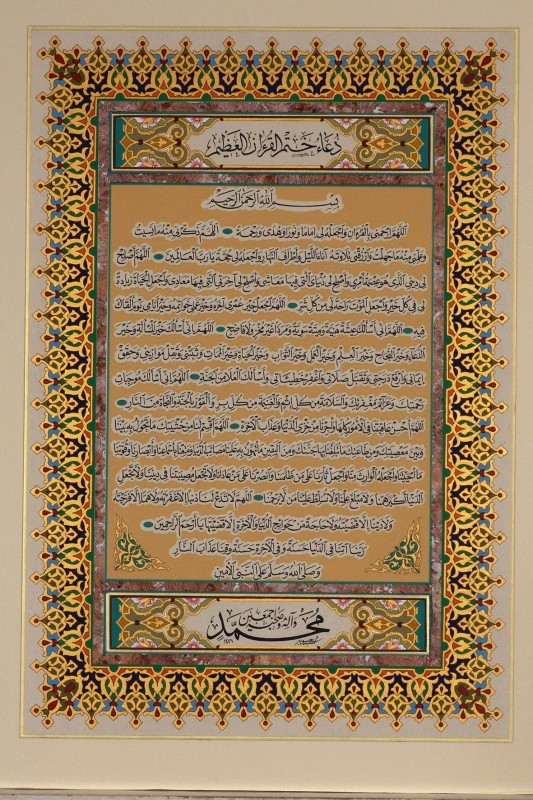 دعاء ختم القرءان العظيم
بسم الله الرحمن الرحيم
اللهم ارحمني بالقرءان واجعله لي إماما ونورا وهدى ورحمة اللهم ذكرني منه ما نسيت
وعلمني منه ما جهلت وارزقني تلاوته آناء الليل وأطراف النهار واجعله لي حجة يا رب العالمين اللهم أصلح
لي ديني الذي هو عصمة أمري وأصلح لي دنياي التي فيها معاشي وأصلح لي آخرتي التي فيها معادي واجعل الحياة زيادة
لي في كل خير واجعل الموت راحة لي من كل شر اللهم اجعل خير عمري آخره وخير عملي خواتمه وخير أيامي يوم ألقاك
فيه اللهم إني أسألك عيشة هنية وميتة سوية ومردا غير مخز ولا فاضح اللهم إني أسألك خير المسألة وخير
الدعاء وخير النجاح وخير العلم وخير العمل وخير الثواب وخير الحياة وخير الممات وثبتني وثقل موازيني وحقق
إيماني وارفع درجتي وتقبل صلاتي واغفر خطيئاتي وأسألك العلا من الجنة اللهم إني أسألك موجبات
رحمتك وعزائم مغفرتك والسلامة من كل إثم والغنيمة من كل بر والفوز بالجنة والنجاة من النار
اللهم أحسن عاقبتنا في الأمور كلها وأجرنا من خزي الدنيا وعذاب الآخرة اللهم اقسم لنا من خشيتك ما تحول به بيننا
وبين معصيتك ومن طاعتك ما تبلغنا بها جنتك ومن اليقين ما تهون به علينا مصائب الدنيا ومتعنا بأسماعنا وأبصارنا وقوتنا
ما أحييتنا واجعله الوارث منا واجعل ثأرنا على من ظلمنا وانصرنا على من عادانا ولا تجعل مصيبتنا في ديننا ولا تجعل
الدنيا أكبر همنا ولا مبلغ علمنا ولا تسلط علينا من لا يرحمنا اللهم لا تدع لنا ذنبا إلا غفرته ولا هما إلا فرجته
ولا دينا إلا قضيته ولا حاجة من حوائج الدنيا والآخرة إلا قضيتها يا أرحم الراحمين
ربنا آتنا في الدنيا حسنة وفي الآخرة حسنة وقنا عذاب النار
وصلى الله وسلم على النبي الأمين
محمد وآله وصحبه أجمعين